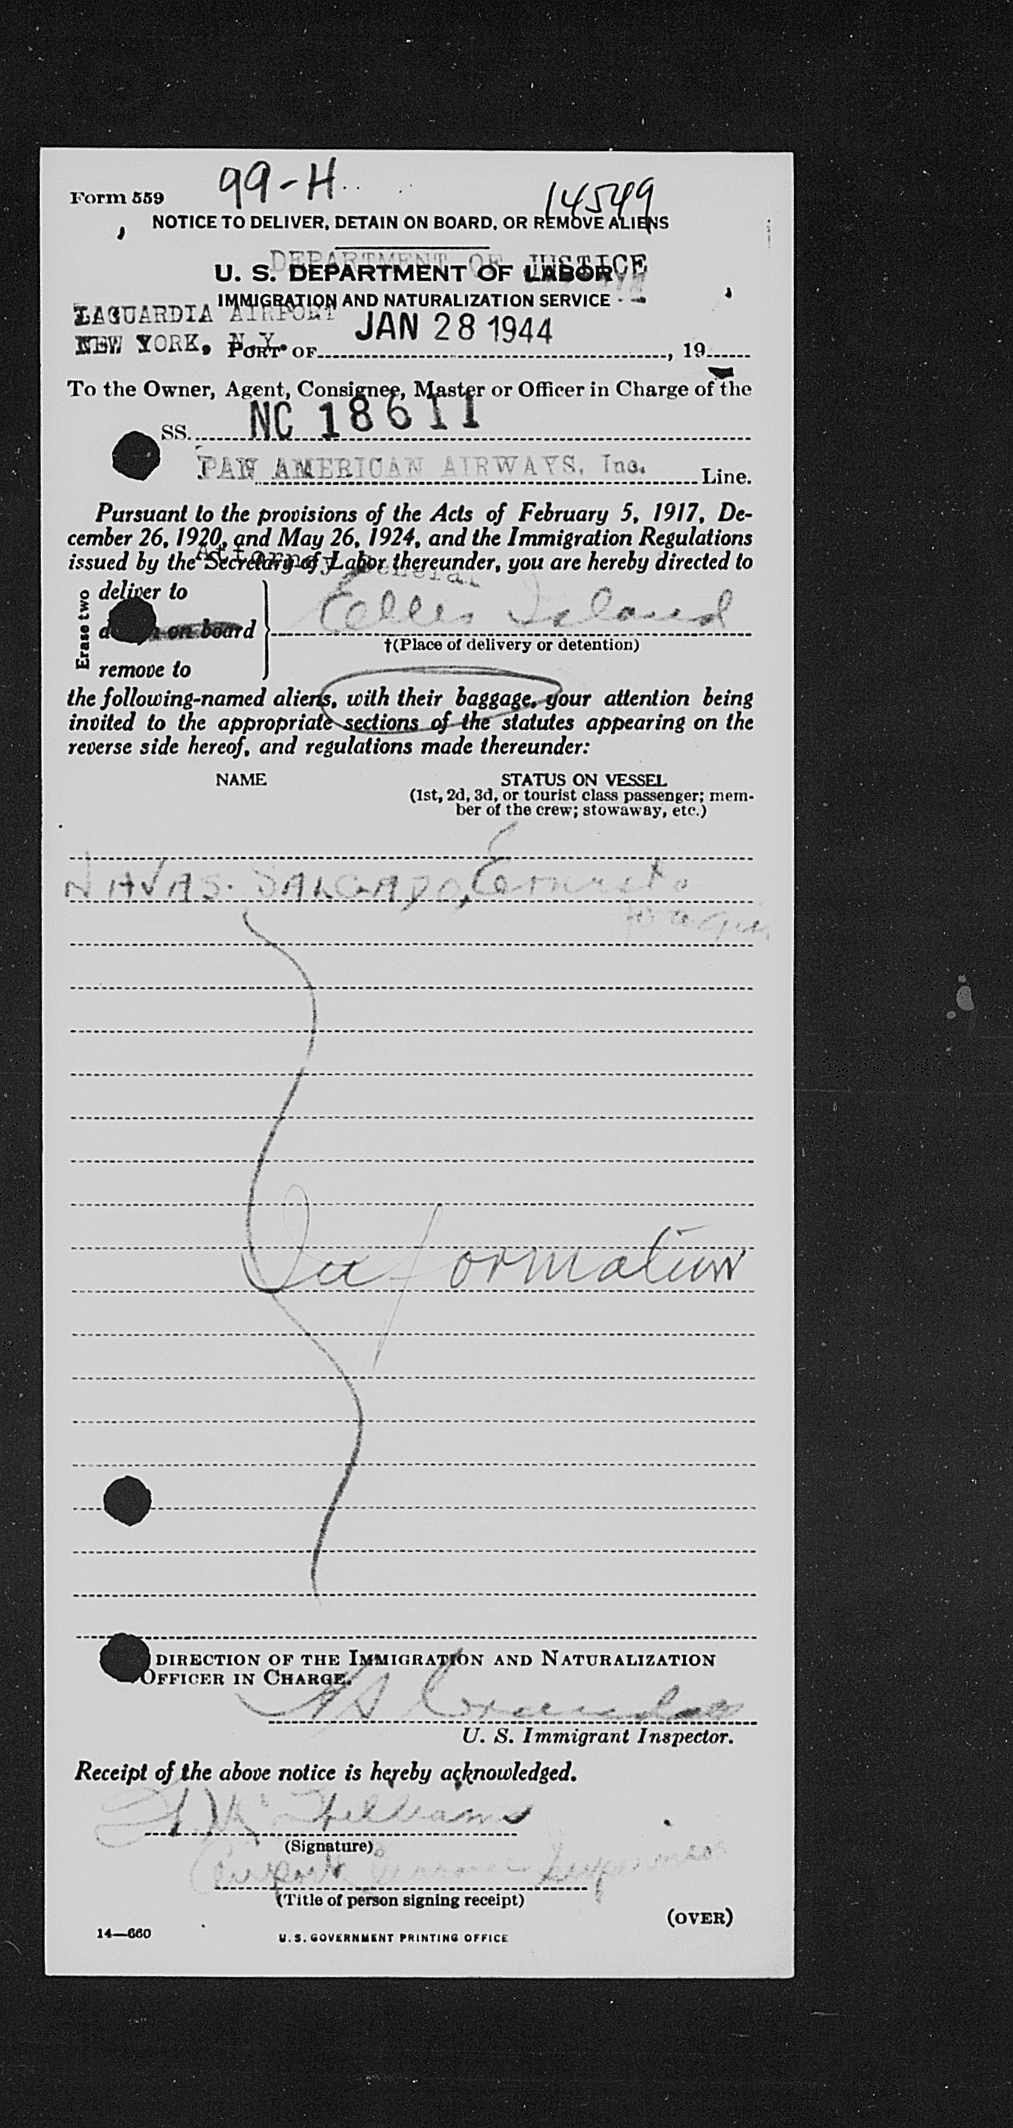 99-H
14549
Form 559
NOTICE TO DELIVER, DETAIN ON BOARD, OR REMOVE ALIENS
DEPARTMENT OF JUSTICE
U. S. DEPARTMENT OF LABOR
IMMIGRATION AND NATURALIZATION SERVICE
LAGUARDIA AIRPORT
NEW YORK, N.Y. JAN 28 1944
PORT OF , 19
To the Owner, Agent, Consignee, Master or Officer in Charge of the
SS. NC 18611
PAN AMERICAN AIRWAYS, Inc. Line.
Pursuant to the provisions of the Acts of February 5, 1917, De-
cember 26, 1920, and May 26, 1924, and the Immigration Regulations
Attorney General
issued by the Secretary of Labor thereunder, you are hereby directed to
Erase two
deliver to
on board
remove to
Ellis Island
†(Place of delivery or detention)
the following-named aliens, with their baggage, your attention being
invited to the appropriate sections of the statutes appearing on the
reverse side hereof, and regulations made thereunder:
NAME STATUS ON VESSEL
(1st, 2d, 3d, or tourist class passenger; mem-
ber of the crew; stowaway, etc.)
NAVAS-SALGADO, Ernesto
Information
DIRECTION OF THE IMMIGRATION AND NATURALIZATION
OFFICER IN CHARGE.
U. S. Immigrant Inspector.
Receipt of the above notice is hereby acknowledged.
(Signature)
Airport
(Title of person signing receipt)
(OVER)
14—660
U.S. GOVERNMENT PRINTING OFFICE